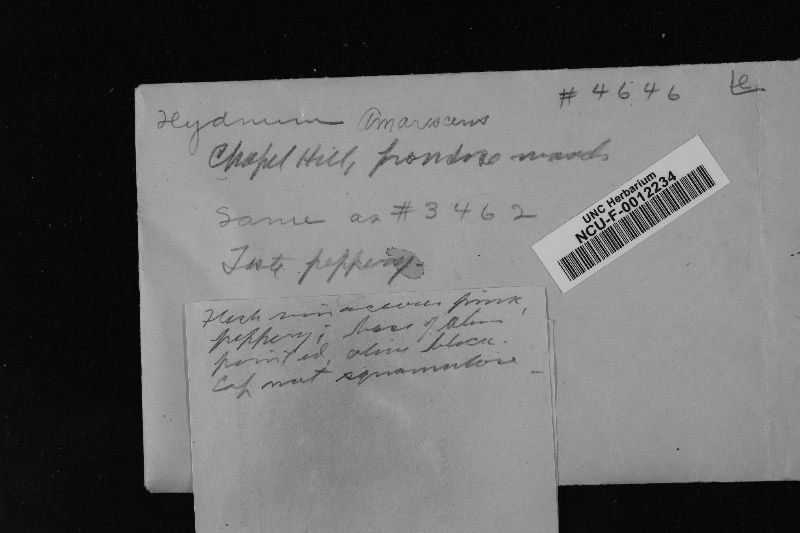 # 4646 te
Hydnum amarescens
Chapel Hill, frondose woods
Same as # 3462
Taste peppery.
UNC Herbarium
NCU-F-0012234
Flesh vinaceous pink,
peppery; base of stem
pointed, olive black.
Cap not squamulose -